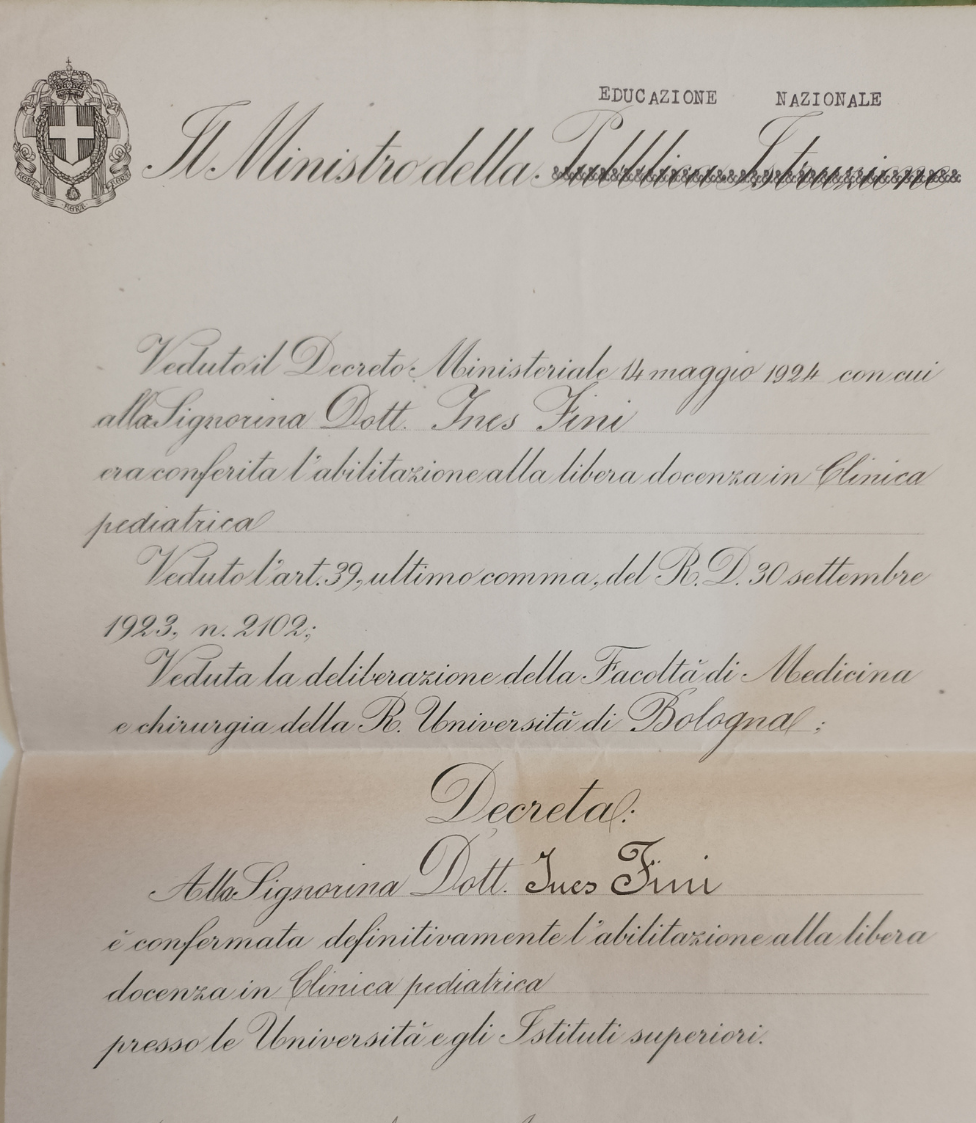 EDUCAZIONE NAZIONALE
Il Ministro della Pubblica Istruzione
Veduto il Decreto Ministeriale 14 maggio 1924 con cui
alla Signorina Dott. Ines Fini
era conferita l'abilitazione alla libera docenza in Clinica
pediatrica
Veduto l'art. 39, ultimo comma, del R. D. 30 settembre
1923, n. 2102;
Veduta la deliberazione della Facoltà di Medicina
e chirurgia della R. Università di Bologna;
Decreta:
Alla Signorina Dott. Ines Fini
è confermata definitivamente l'abilitazione alla libera
docenza in Clinica pediatrica
presso le Università e gli Istituti superiori.